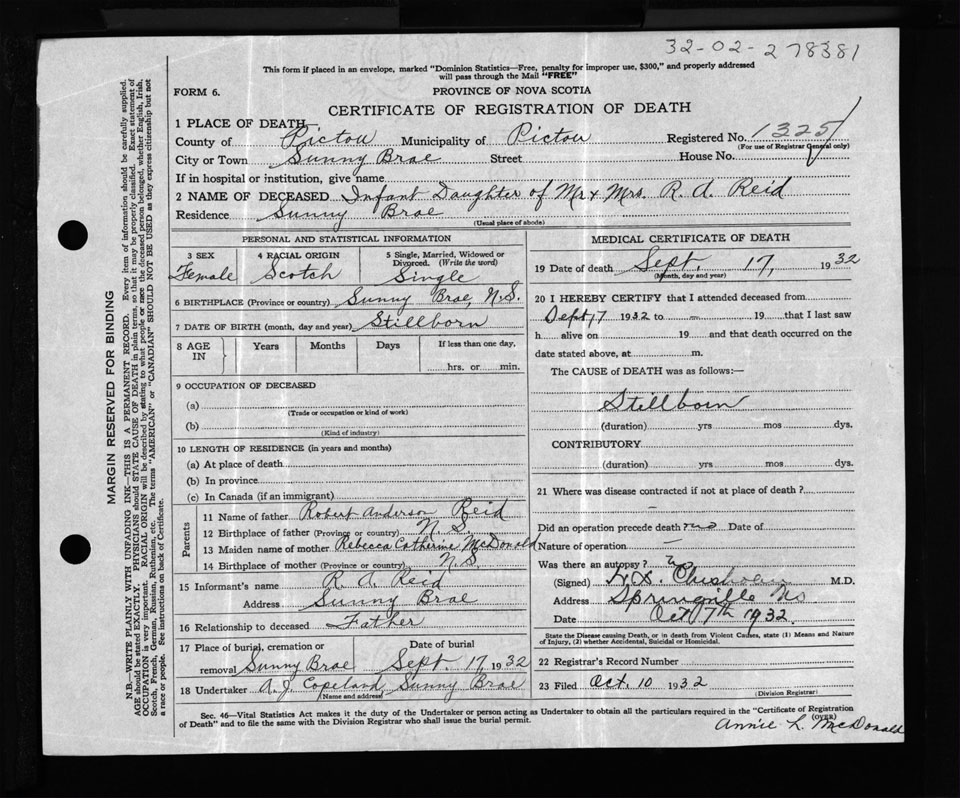 32-02-278381
This form if placed in an envelope, marked "Dominion Statistics—Free, penalty for improper use, $300," and properly addressed
will pass through the Mail "FREE"
FORM 6.
PROVINCE OF NOVA SCOTIA
CERTIFICATE OF REGISTRATION OF DEATH
1 PLACE OF DEATH
County of Pictou Municipality of Pictou Registered No. 1325
(For use of Registrar General only)
City or Town Sunny Brae Street House No.
If in hospital or institution, give name
2 NAME OF DECEASED Infant Daughter of Mr & Mrs. R. A. Reid
Residence Sunny Brae
(Usual place of abode)
PERSONAL AND STATISTICAL INFORMATION
3 SEX 4 RACIAL ORIGIN 5 Single, Married, Widowed or
Divorced. (Write the word)
Female Scotch Single
6 BIRTHPLACE (Province or country) Sunny Brae, N.S.
7 DATE OF BIRTH (month, day and year) Stillborn
8 AGE IN Years Months Days If less than one day,
hrs. or min.
9 OCCUPATION OF DECEASED
(a)
(Trade or occupation or kind of work)
(b)
(Kind of industry)
10 LENGTH OF RESIDENCE (in years and months)
(a) At place of death
(b) In province
(c) In Canada (if an immigrant)
Parents
11 Name of father Robert Anderson Reid
12 Birthplace of father (Province or country) N.S.
13 Maiden name of mother Rebecca Catherine McDonald
14 Birthplace of mother (Province or country) N.S.
15 Informant's name R. A. Reid
Address Sunny Brae
16 Relationship to deceased Father
17 Place of burial, cremation or Date of burial
removal Sunny Brae Sept. 17 1932
18 Undertaker A. J. Copeland, Sunny Brae
(Name and address)
MEDICAL CERTIFICATE OF DEATH
19 Date of death Sept. 17, 1932
(Month, day and year)
20 I HEREBY CERTIFY that I attended deceased from
Sept 17 1932 to — 19 that I last saw
h alive on 19 and that death occurred on the
date stated above, at m.
The CAUSE of DEATH was as follows:—
Stillborn
(duration) yrs mos dys.
CONTRIBUTORY
(duration) yrs mos dys.
21 Where was disease contracted if not at place of death?
—
Did an operation precede death no Date of
Nature of operation —
Was there an autopsy?
(Signed) Chisholm M.D.
Address Springville NS
Date Oct 7th 1932
State the Disease causing Death, or in death from Violent Causes, state (1) Means and Nature
of Injury, (2) whether Accidental, Suicidal or Homicidal.
22 Registrar's Record Number
23 Filed Oct. 10 1932
(Division Registrar)
Sec. 46—Vital Statistics Act makes it the duty of the Undertaker or person acting as Undertaker to obtain all the particulars required in the "Certificate of Registration
of Death" and to file the same with the Division Registrar who shall issue the burial permit.
(OVER)
Annie L. McDonald
MARGIN RESERVED FOR BINDING
N.B.—WRITE PLAINLY WITH UNFADING INK—THIS IS A PERMANENT RECORD. Every item of information should be carefully supplied.
AGE should be stated EXACTLY. PHYSICIANS should STATE CAUSE OF DEATH in plain terms, so that it may be properly classified. Exact statement of
OCCUPATION is very important. RACIAL ORIGIN will be described by stating to what people or race the deceased person belonged, whether English, Irish,
Scotch, French, German, Russian, Ruthenian, etc. The terms "AMERICAN" or "CANADIAN" SHOULD NOT BE USED as they express citizenship but not
a race or people. See instructions on back of Certificate.